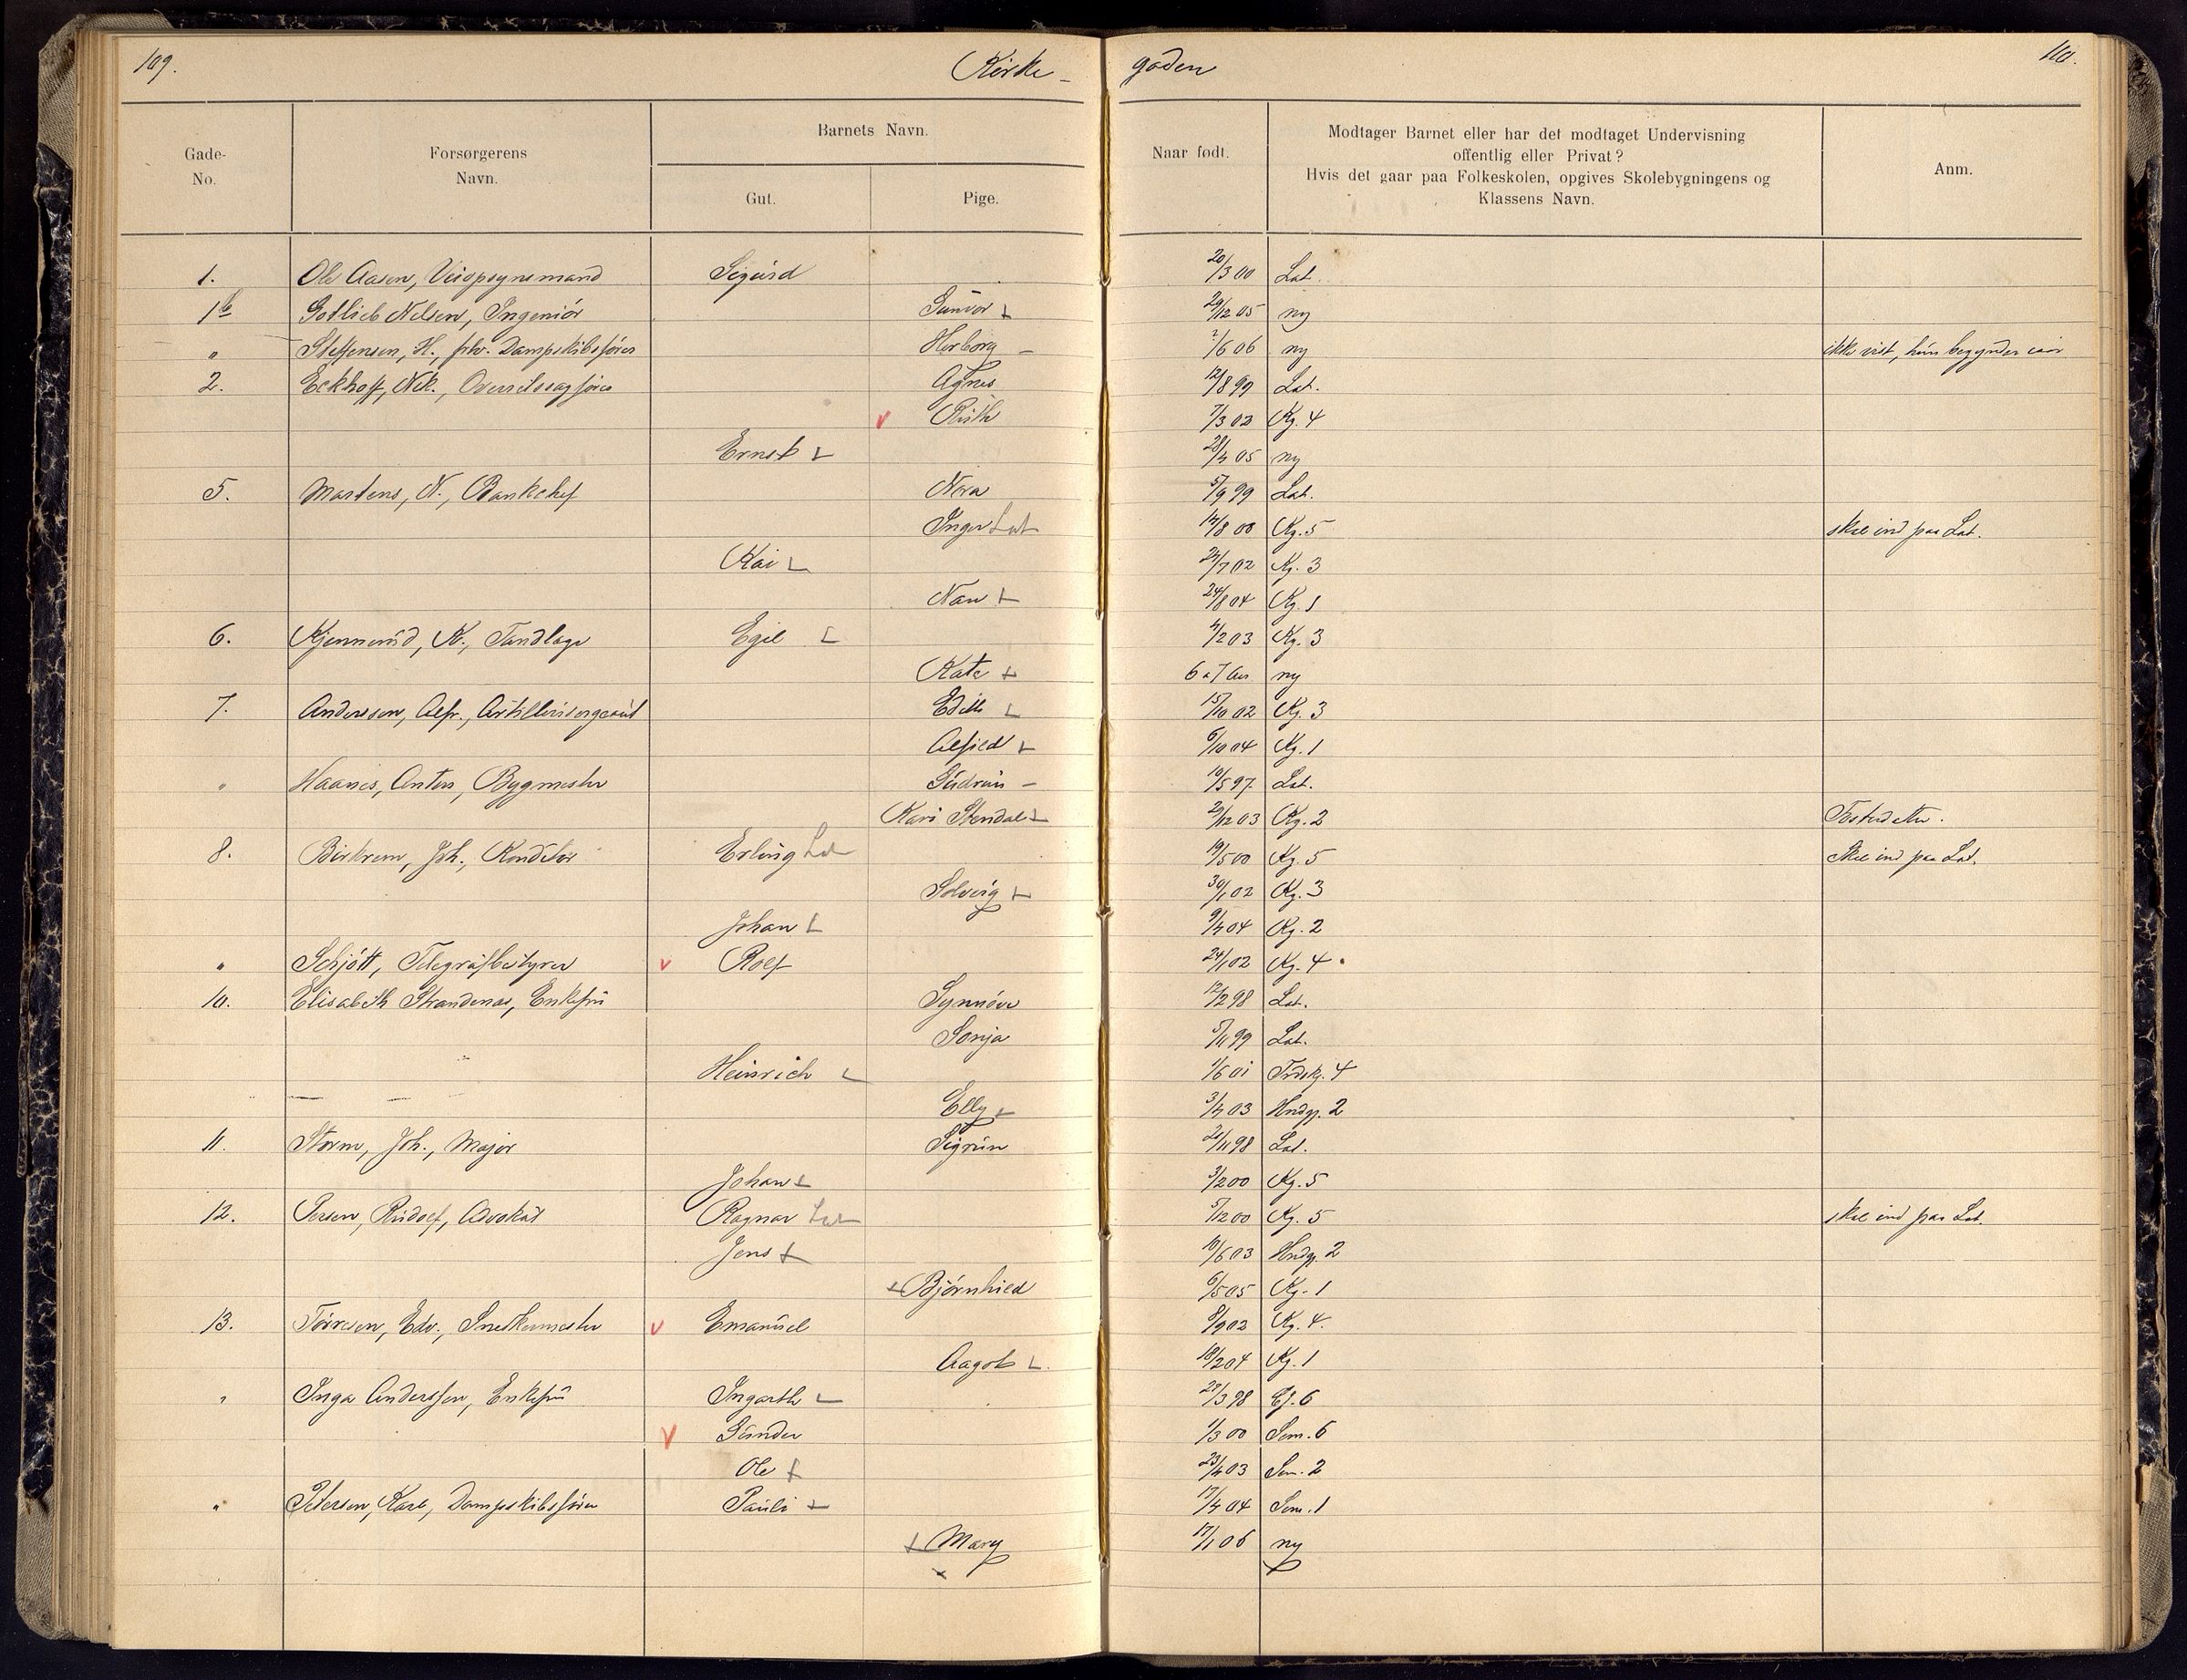 109. Kirke- gaden 110.
Gade-No. Forsørgerens Navn. Barnets Navn. Gut. Pige. Naar født. Modtager Barnet eller har det modtaget Undervisning offentlig eller Privat? Hvis det gaar paa Folkeskolen, opgives Skolebygningens og Klassens Navn. Anm.
1. Ole Aasen, Sigurd 20/3 00 Lat.
1b Gotlieb Nelsen, Ingeniör Gunvor 29/12 05 ny
" Steffensen, H., fhv. Dampskibsförer Herborg 2/6 06 ny ikke vist, hun begynder iaar
2. Eckhoff, Nik., Overretssagförer Agnes 12/8 97 Lat.
v Ruth 7/3 02 Kg. 4
Ernst 28/4 05 ny
5. Martens, N., Bankchef Nora 5/9 99 Lat.
Inger Lat 14/8 00 Kg. 5 skal ind paa Lat.
Kai 24/7 02 Kg. 3
Nan 24/8 04 Kg. 1
6. Kjennerud, N., Tandlæge Egil 4/2 03 Kg. 3
Kate 6 a 7 Aar ny
7. Anderssen, Alfr., Artillerisergeant Edith 15/10 02 Kg. 3
Alfild 6/10 04 Kg. 1
" Haanes, Anton, Bygmester Gudrun 10/5 97 Lat.
Kari Stendal 29/12 03 Kg. 2 Fosterdatter.
8. Birkrem, Joh., Konditor Erling Lat 19/5 00 Kg. 5 Skal ind paa Lat.
Solveig 30/1 02 Kg. 3
Johan 9/4 04 Kg. 2
" Schjött, Telegrafbestyrer v Rolf 24/1 02 Kg. 4
10. Elisabeth Strandenæs, Enkefru Synnöve 12/2 98 Lat.
Sonja 5/11 99 Lat.
Heinrich 1/6 01 Trdskg. 4
Elly 3/4 03 Hndgg. 2
11. Storm, Joh., Major Sigrun 20/11 98 Lat.
Johan 3/2 00 Kg. 5
12. Iversen, Rudolf, Advokat Ragnar Lat 5/12 00 Kg. 5 skal ind paa Lat.
Jens 10/6 03 Hndgg. 2
Björnhild 6/5 05 Kg. 1
13. Törresen, Edv., Snedkermester v Emanuel 8/9 02 Kg. 4.
Aagot 18/2 04 Kg. 1
" Inga Anderssen, Enkefru Ingarth 27/3 98 6
v Gunder 1/3 00 Sem. 6
Ole 23/4 03 Sem. 2
" Petersen, Karl, Dampskibsförer Pauli 17/4 04 Sem. 1
Mary 17/1 06 ny